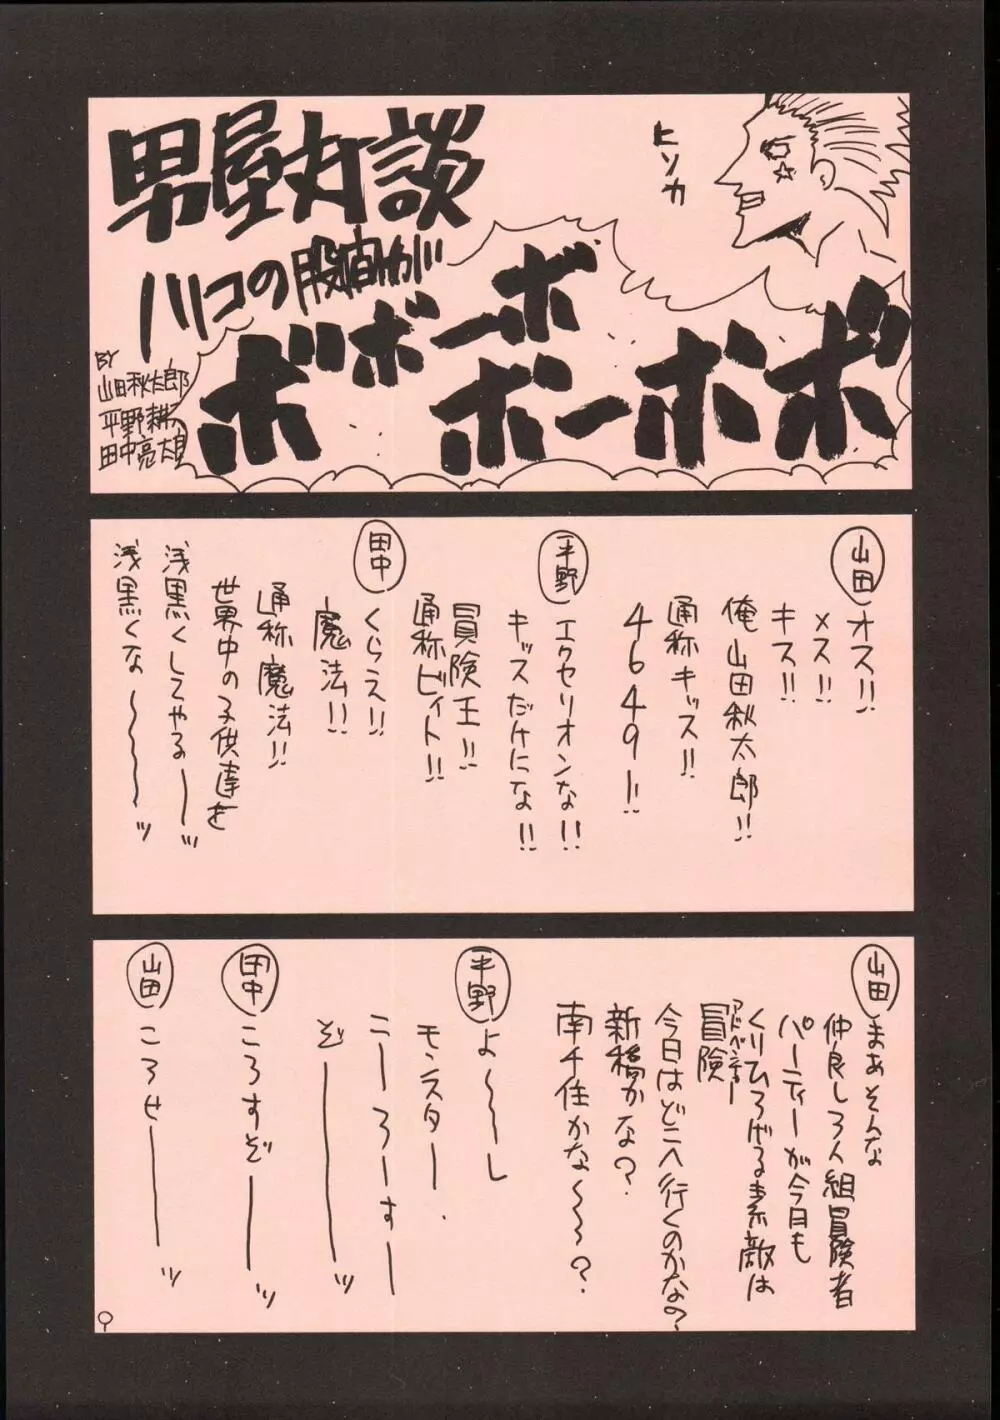 男屋対談
ハリコの股間が
ボボボーボ
ボーボボ
ヒソカ
BY
山田秋太郎
平野耕太
田中亮太郎
山田
オス!!
メス!!
キス!!
俺山田秋太郎!!
通称キッス!!
4649ー!!
平野
エクセリオンな!!
キッスだけにな!!
冒険王!!
通称ビィト!!
田中
くらえ!!
魔法!!
通称魔法!!
世界中の子供達を
浅黒くしてやるーーッ
浅黒くな〜〜〜〜ッ
山田
まあそんな
仲良し3人組冒険者
パーティーが今日も
くりひろげる素敵な
冒険
アドベンチャー
今日はどこへ行くのかな?
新橋かな?
南千住かな〜〜?
平野
よ〜〜し
モンスター
こーろーすー
ぞーーーーッ
田中
ころすぞーーーッ
山田
ころせーーーーッ